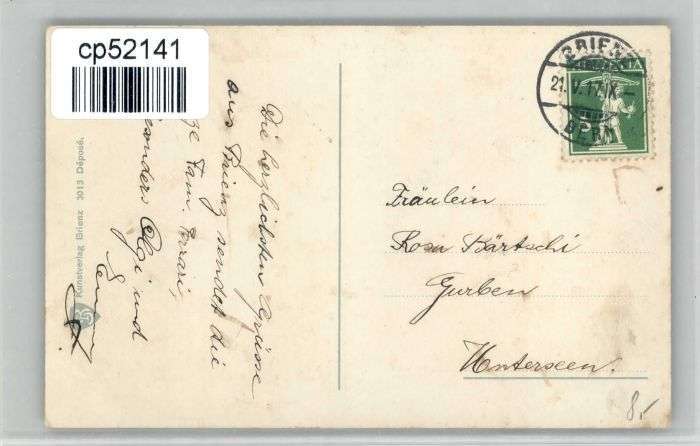 cp52141
Die herzlichsten Grüsse
aus Brienz sendet die
Fam.
besonders Olgi und
Kunstverlag Brienz 3013 Déposé.
BRIENZ
21.V.17.IX-
BERN
Fräulein
Rosa Bärtschi
Gurben
Unterseen.
8.-